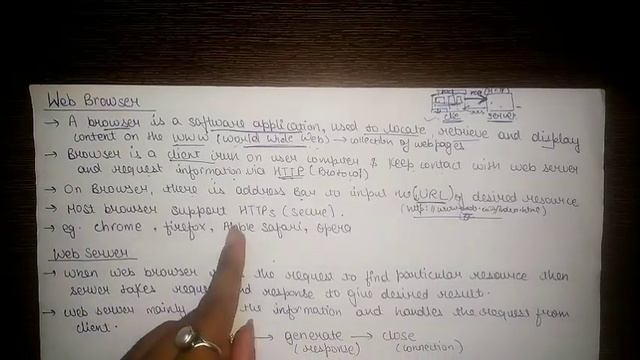 Web Browser
→ A browser is a software application, used to locate, retrieve and display
content on the WWW (world wide web) → collection of webpages
→ Browser is a client run on user computer & keep contact with web server
and request information via HTTP (Protocol)
→ On Browser, there is address Bar to input URL of desired resource
→ Most browser support HTTPs (secure).
→ eg. chrome, firefox, Apple safari, opera
Web Server
→ when web browser the request to find particular resource then
server takes request and response to give desired result.
→ web server mainly the information and handles the request from
client.
→ generate → close
(response) (connection)